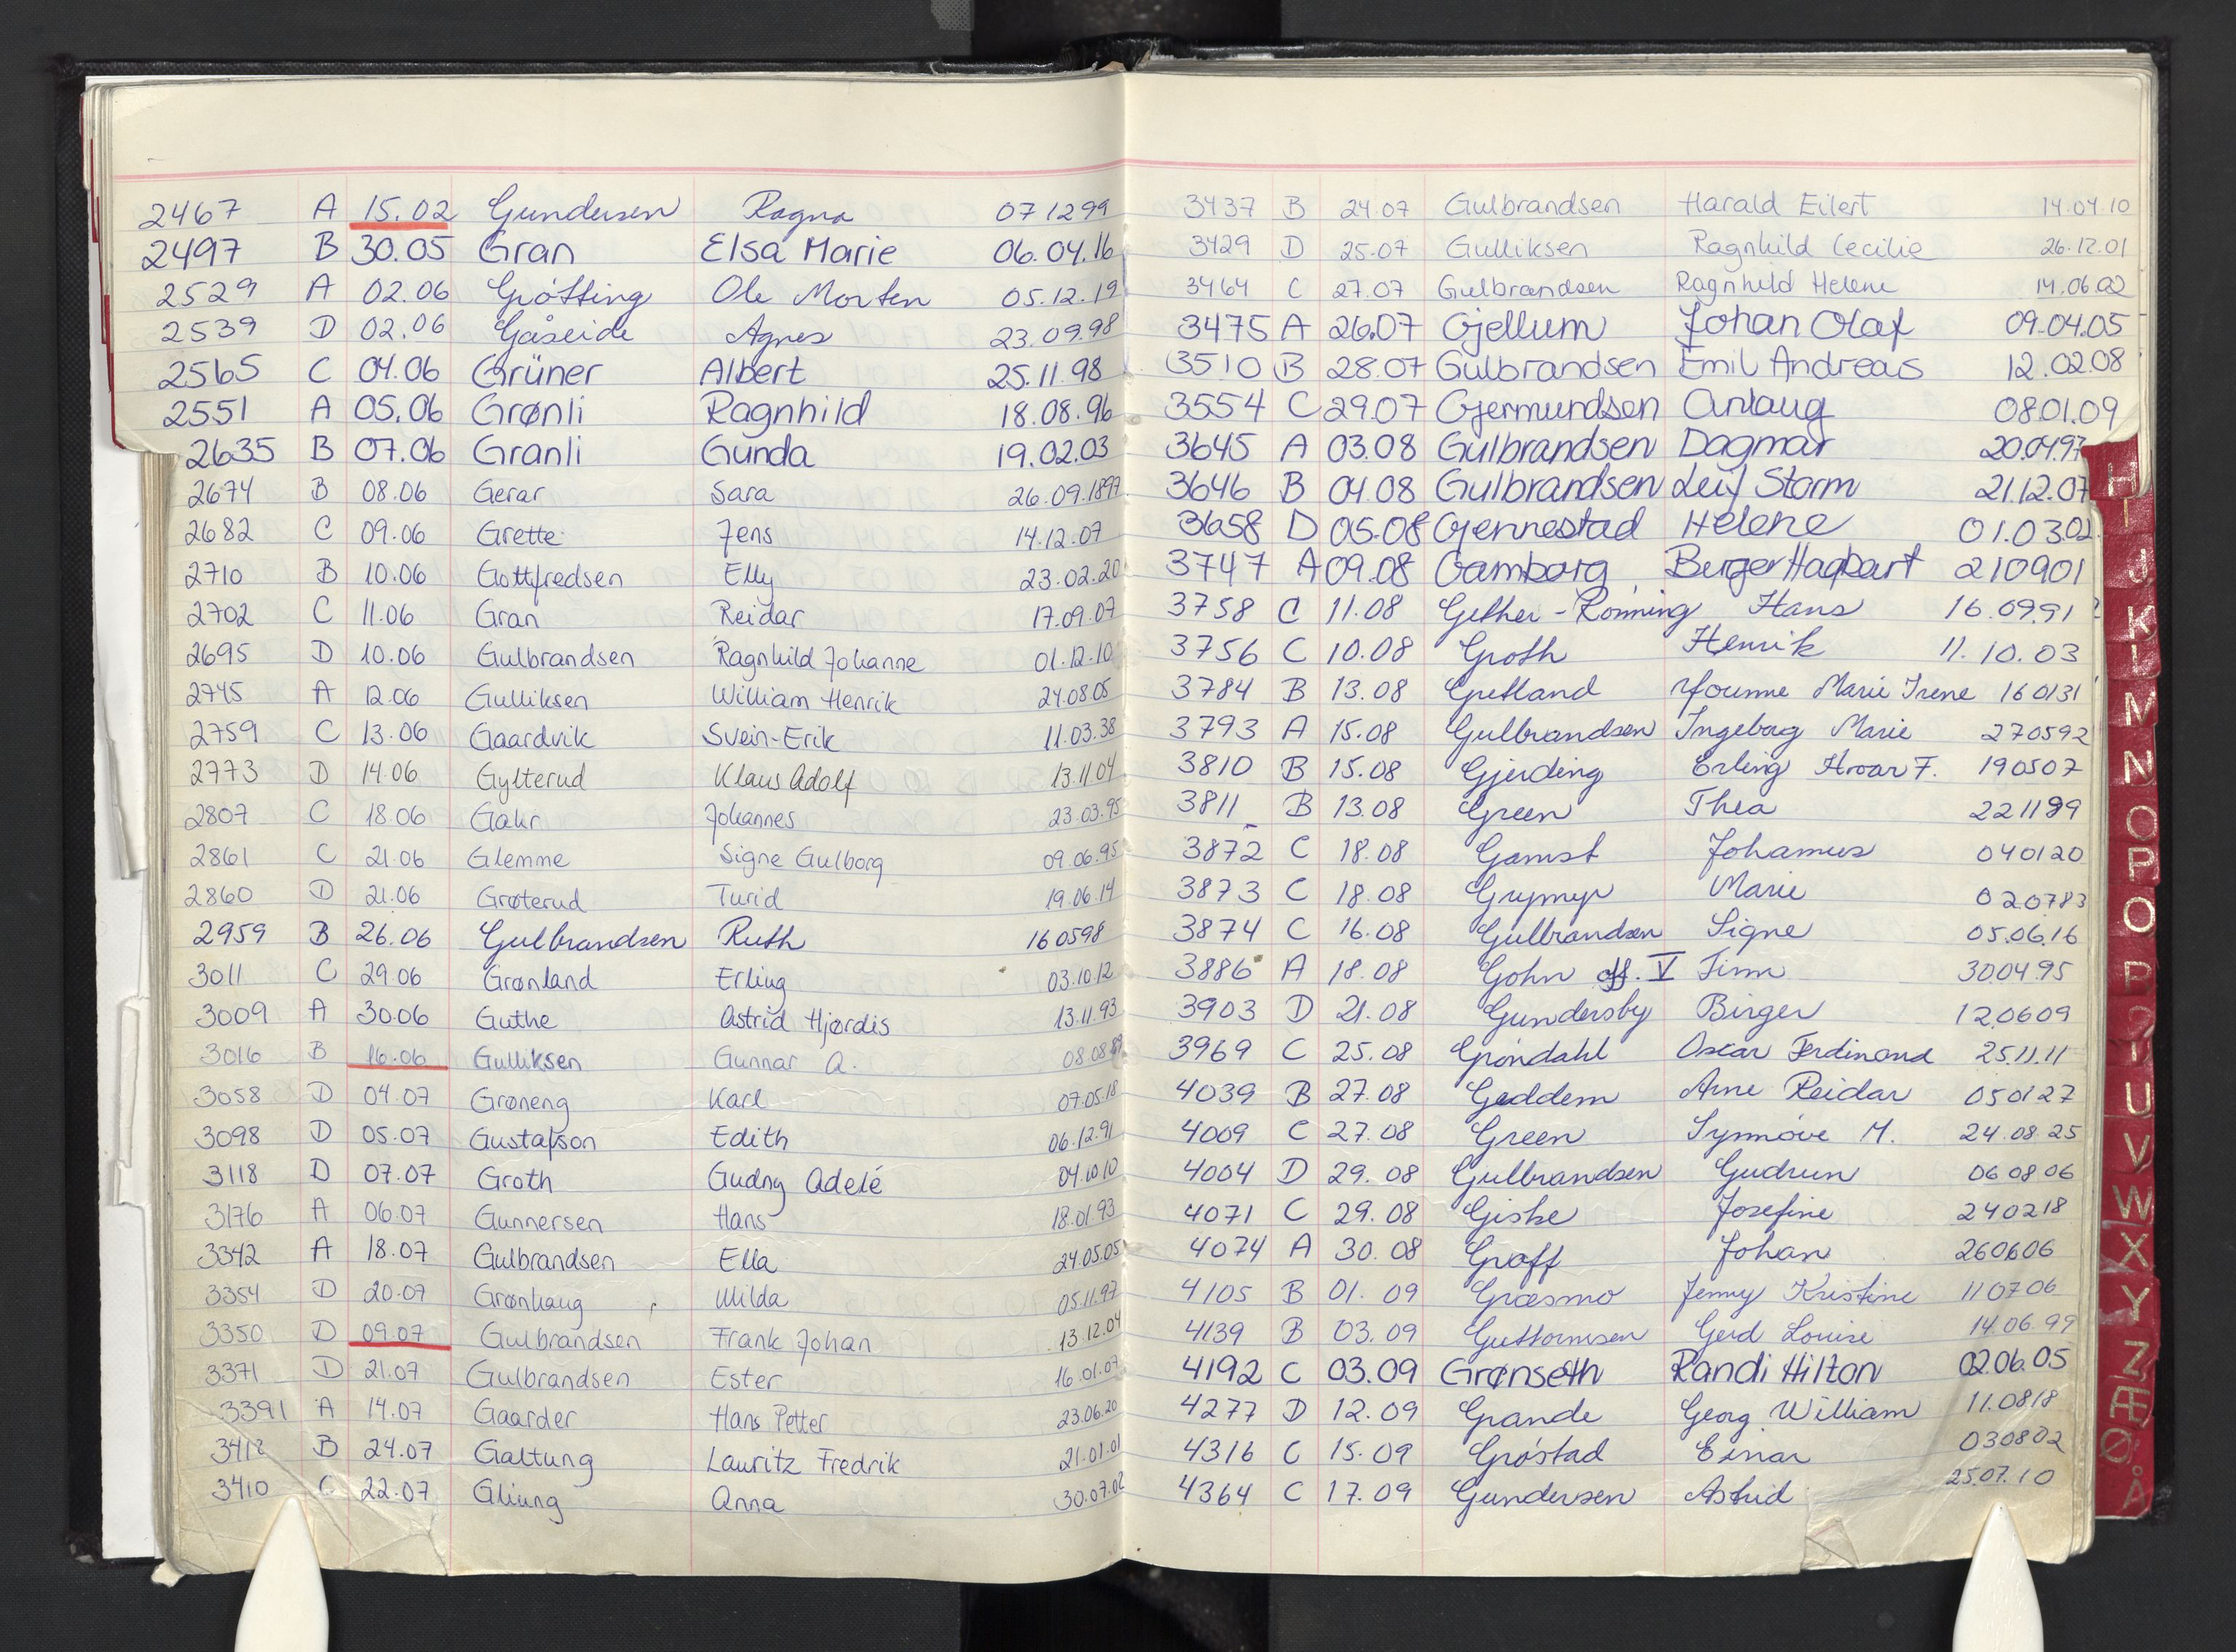 2467 A 15.02 Gundersen Ragna 071299
2497 B 30.05 Gran Elsa Marie 06.04.16
2529 A 02.06 Grötting Ole Morten 05.12.19
2539 D 02.06 Gåseide Agnes 23.09.98
2565 C 04.06 Grüner Albert 25.11.98
2551 A 05.06 Grønli Ragnhild 18.08.96
2635 B 07.06 Granli Gunda 19.02.03
2674 B 08.06 Gerar Sara 26.09.1897
2682 C 09.06 Grette Jens 14.12.07
2710 B 10.06 Gottfredsen Elly 23.02.20
2702 C 11.06 Gran Reidar 17.09.07
2695 D 10.06 Gulbrandsen Ragnhild Johanne 01.12.10
2745 A 12.06 Gulliksen William Henrik 24.08.05
2759 C 13.06 Gaardvik Svein-Erik 11.03.38
2773 D 14.06 Gylterud Klaus Adolf 13.11.04
2807 C 18.06 Gahr Johannes 23.03.95
2861 C 21.06 Glemme Signe Gulborg 09.06.95
2860 D 21.06 Grøterud Turid 19.06.14
2959 B 26.06 Gulbrandsen Ruth 160598
3011 C 29.06 Grønland Erling 03.10.12
3009 A 30.06 Guthe Astrid Hjørdis 13.11.93
3016 B 16.06 Gulliksen Gunnar A. 08.08
3058 D 04.07 Grøneng Karl 07.05.18
3098 D 05.07 Gustafson Edith 06.12.91
3118 D 07.07 Groth Gudny Adelé 04.10.10
3176 A 06.07 Gunnersen Hans 18.01.93
3342 A 18.07 Gulbrandsen Ella 24.05.05
3354 D 20.07 Grønhaug Milda 05.11.97
3350 D 09.07 Gulbrandsen Frank Johan 13.12.04
3371 D 21.07 Gulbrandsen Ester 16.01.07
3391 A 14.07 Gaarder Hans Petter 23.06.20
B 24.07 Galtung Lauritz Fredrik 21.01.01
3410 C 22.07 Gliung Anna 30.07.02
3437 B 24.07 Gulbrandsen Harald Eilert 14.04.10
3429 D 25.07 Gulliksen Ragnhild Cecilie 26.12.01
3464 C 27.07 Gulbrandsen Ragnhild Helene 14.06.02
3475 A 26.07 Gjellum Johan Olaf 09.04.05
3510 B 28.07 Gulbrandsen Emil Andreas 12.02.08
3554 C 29.07 Gjermundsen Anlaug 08.01.09
3645 A 03.08 Gulbrandsen Dagmar 20.04.97
3646 B 04.08 Gulbrandsen Leif Storm 21.12.07
3658 D 05.08 Gjennestad Helene 01.03.02
3747 A 09.08 Gamborg Berger Hagbart 210901
3758 C 11.08 Gether-Rönning Hans 16.09.91
3756 C 10.08 Groth Henrik 11.10.03
3784 B 13.08 Gretland Marie Irene 160131
3793 A 15.08 Gulbrandsen Ingeborg Marie 270592
3810 B 15.08 Gjerding Erling Hroar F. 190507
3811 B 13.08 Green Thea 221199
3872 C 18.08 Gamst Johannes 040120
3873 C 18.08 Grymyr Marie 020783
3874 C 16.08 Gulbrandsen Signe 05.06.16
3886 A 18.08 Gohn off. V Finn 300495
3903 D 21.08 Gundersby Birger 120609
3969 C 25.08 Gröndahl Oscar Ferdinand 25.11.11
4039 B 27.08 Geddem Arne Reidar 050127
4009 C 27.08 Green Synnöve M. 24.08.25
4004 D 29.08 Gulbrandsen Gudrun 060806
4071 C 29.08 Giske Josefine 240218
4074 A 30.08 Graff Johan 260606
4105 B 01.09 Græsmo Jenny Kristine 110706
4139 B 03.09 Guttormsen Gerd Louise 14.06.99
4192 C 03.09 Grønseth Randi Hilton 02.06.05
4277 D 12.09 Grande Georg William 11.0818
4316 C 15.09 Gröstad Einar 030802
4364 C 17.09 Gundersen Astrid 25.07.10
H
I
J
K
L
M
N
O
P
O
P
U
V
W
X
Y
Z
Æ
Ø
Å